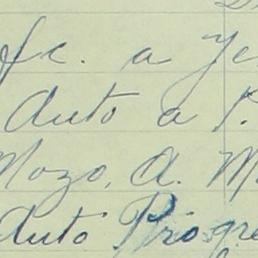 a
Auto a P.
Mozo, A. M
Auto Progre